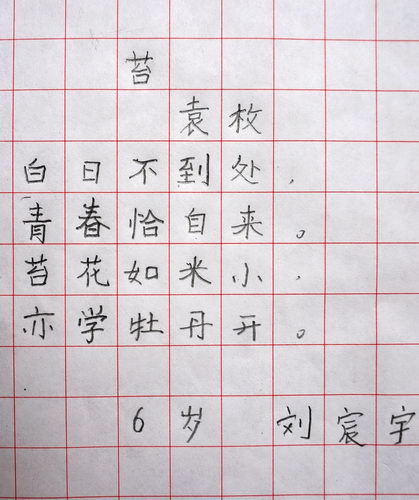 苔
袁枚
白日不到处，
青春恰自来。
苔花如米小，
亦学牡丹开。
6岁 刘宸宇